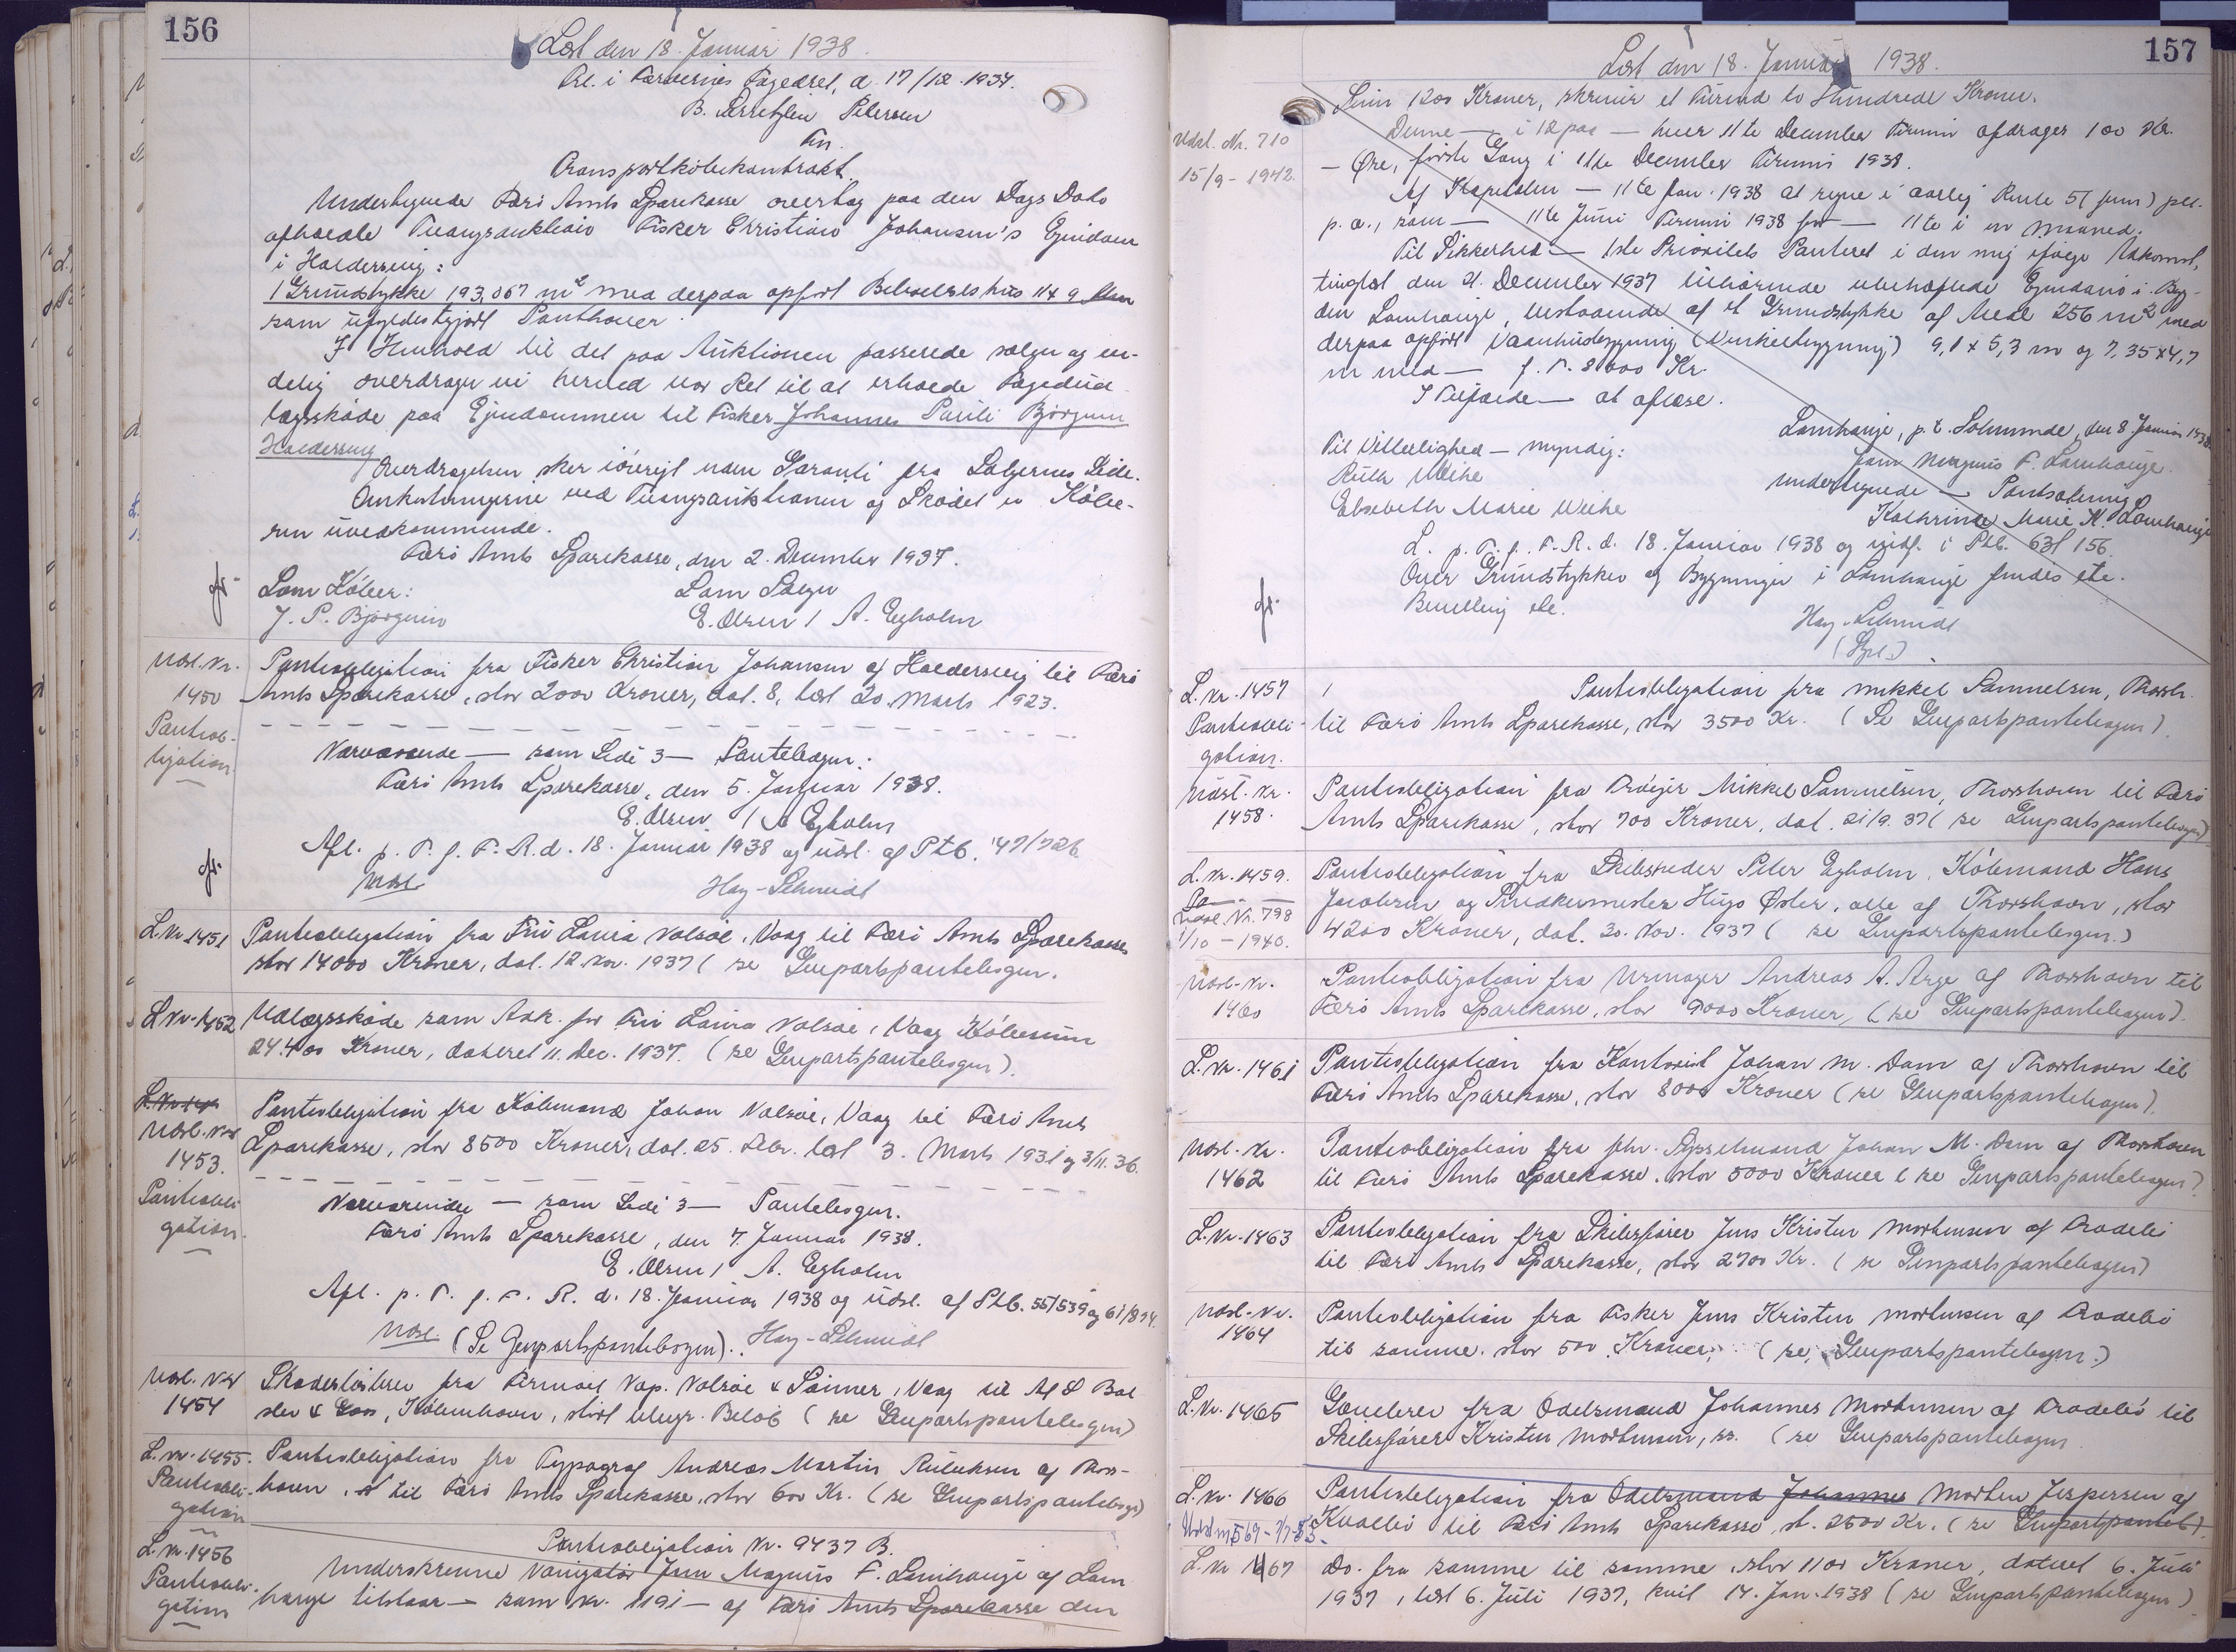 156
Læst den 18. Januar 1938.
Frl. i Færøernes Fogedret, d. 17/12. 1937.
B. Petersen
Fm.
Transportkøbekontrakt.
Undertegnede Færø Amts Sparekasse overtog paa den Dags Dato
afholdte Tvangsauktion Fisker Christian Johansen's Ejendom
i Haldersvig:
1 Grundstykke 193,067 m² med derpaa opført Beboelseshus 11x9 Alen
som ufyldestgjort Panthaver.
I Henhold til det paa Auktionen passerede sælger og en-
delig overdrager vi herved vor Ret til at erholde Fogedud-
lægsskøde paa Ejendommen til Fisker Johannes Pauli Bjørgum
Haldersvig
Overdragelsen sker iøvrigt uden Garanti fra Sælgernes Side.
Omkostningerne ved Tvangsauktionen og Skødet er Købe-
ren uvedkommende.
Færø Amts Sparekasse, den 2. December 1937.
Som Køber: Som Sælger
J. P. Bjørgum E. Olsen / A. Egholm
Udsl. Nr. 1450 Pantobligation
Pantobligation fra Fisker Christian Johansen af Haldersvig til Færø
Amts Sparekasse, stor 2000 Kroner, dat. 8, læst 20. Marts 1923.
Nærværende — som Side 3 — Pantebogen:
Færø Amts Sparekasse, den 5. Januar 1938.
E. Olsen / A Egholm
Afl. p. T. f. F. R. d. 18. Januar 1938 og udsl. af Ptb. 47/726
Udsl Hay-Schmidt
L. Nr. 1451 Pantobligation fra Fru Laura Valsøe, Vaag til Færø Amts Sparekasse
stor 14000 Kroner, dat. 12. Nov. 1937 (se Genpartspantebogen.
L. Nr. 1452 Udlægsskøde som Adk. for Fru Laura Valsøe, Vaag Købesum
24.400 Kroner, dateret 11. Dec. 1937. (se Genpartspantebogen).
Udsl. Nr. 1453. Pantobligation
Pantobligation fra Købmand Johan Valsøe, Vaag til Færø Amts
Sparekasse, stor 8500 Kroner, dat. 25. Febr. læst 3. Marts 1931 og 3/11. 36.
Nærværende — som Side 3 — Pantebogen.
Færø Amts Sparekasse, den 7. Januar 1938.
E. Olsen / A. Egholm
Afl. p. T. f. F. R. d. 18. Januar 1938 og udsl. af Ptb. 55/539 og 61/894.
Udsl. (Se Genpartspantebogen). Hay-Schmidt
Udsl. Nr 1454 Skadesløsbrev fra Firmaet Nap. Valsøe & Sønner, Vaag til
København, stort Beløb (se Genpartspantebogen)
L. Nr. 1455. Pantobligation
Pantobligation fra Typograf Andreas Martin af Thors-
havn, til Færø Amts Sparekasse, stor 600 Kr. (se Genpartspantebogen)
L. Nr. 1456 Pantobligation
Pantobligation Nr. 9437 B.
Underskrevne Navigatør Jens Magnus F. Lamhauge af Lam
hauge tilstaar — som Nr. 1191 — af Færø Amts Sparekasse den
157
Læst den 18. Januar 1938.
Sum 1200 Kroner, skriver et Tusind to Hundrede Kroner.
Denne — i 12 paa — hver 11te December Termin afdrager 100 Kr.
— Øre, første Gang i 11te December Termin 1938.
Af Kapitalen — 11te Jan. 1938 at regne i aarlig Rente 5 (fem) pct.
p. a., som — 11te Juni Termin 1938 for — 11te i en Maaned.
Til Sikkerhed — 1ste Prioritets Panteret i den mig ifølge Adkomst,
tinglæst den 21. December 1937 tilhørende ubehæftede Ejendom i Byg-
den Lamhauge, bestaaende af et Grundstykke af Areal 256 m² med
derpaa opført Vaaningsbygning (Vinkelbygning) 9,1 x 5,3 m og 7,35 x 4,7
m med — f. T. 8000 Kr.
I Tilfælde — at aflæse.
Lamhauge, p. t. Solmunde, den 8. Januar 1938
Til Vitterlighed — myndig: Jens Magnus F. Lamhauge.
Ruth Weihe undertegnede — Pantsætning
Elisabeth Marie Weihe Kathrine Marie K. Lamhauge
L. p. T. f. F. R. d. 18. Januar 1938 og indf. i Ptb. 63/156.
Over Grundstykker og Bygninger i Lamhauge findes ete.
Bevilling ete.
Hay-Schmidt
(Spl.)
Udsl. Nr. 710
15/9 - 1942.
L. Nr. 1457 Pantobligation.
Pantobligation fra Mikkel Samuelsen, Thorsh.
til Færø Amts Sparekasse, stor 3500 Kr. (Se Genpartspantebogen).
Udsl. Nr. 1458. Pantobligation fra Mikkel Samuelsen, Thorshavn til Færø
Amts Sparekasse, stor 700 Kroner, dat. 21/9. 37 (se Genpartspantebogen)
L. Nr. 1459. Pantobligation fra Skibsreder Peter Egholm, Købmand Hans
Jacobsen og Snedkermester Hugo Øster, alle af Thorshavn, stor
4200 Kroner, dat. 30. Nov. 1937 (se Genpartspantebogen.)
Udsl. Nr. 798
1/10 - 1940.
Udsl. Nr. 1460 Pantobligation fra Urmager Andreas A. Arge af Thorshavn til
Færø Amts Sparekasse, stor 9000 Kroner, (se Genpartspantebogen).
L. Nr. 1461 Pantobligation fra Kontorist Johan M. Dam af Thorshavn til
Færø Amts Sparekasse, stor 8000 Kroner (se Genpartspantebogen).
Udsl. Nr. 1462 Pantobligation fra fhv. Johan M. Dam af Thorshavn
til Færø Amts Sparekasse, stor 5000 Kroner (se Genpartspantebogen).
L. Nr. 1463 Pantobligation fra Skibsfører Jens Kristen Mortensen af Tradebø
til Færø Amts Sparekasse, stor 2700 Kr. (se Genpartspantebogen)
Udsl. Nr. 1464 Pantobligation fra Fisker Jens Kristen Mortensen af Tradebø
til samme. stor 500 Kroner, (se, Genpartspantebogen.)
L. Nr. 1465 Gavebrev fra Odelsmand Johannes Mortensen af Tradebø til
Skibsfører Kristen Mortensen, (se Genpartspantebogen
L. Nr. 1466 Pantobligation fra Odelsmand Johannes Morten Jespersen af
Kvalbø til Færø Amts Sparekasse, st. 2500 Kr. (se Genpartspanteb).
L. Nr 1467 Do. fra samme til samme, stor 1100 Kroner, dateret 6. Juli
1937, læst 6. Juli 1937, kvit 14. Jan. 1938 (se Genpartspantebogen)